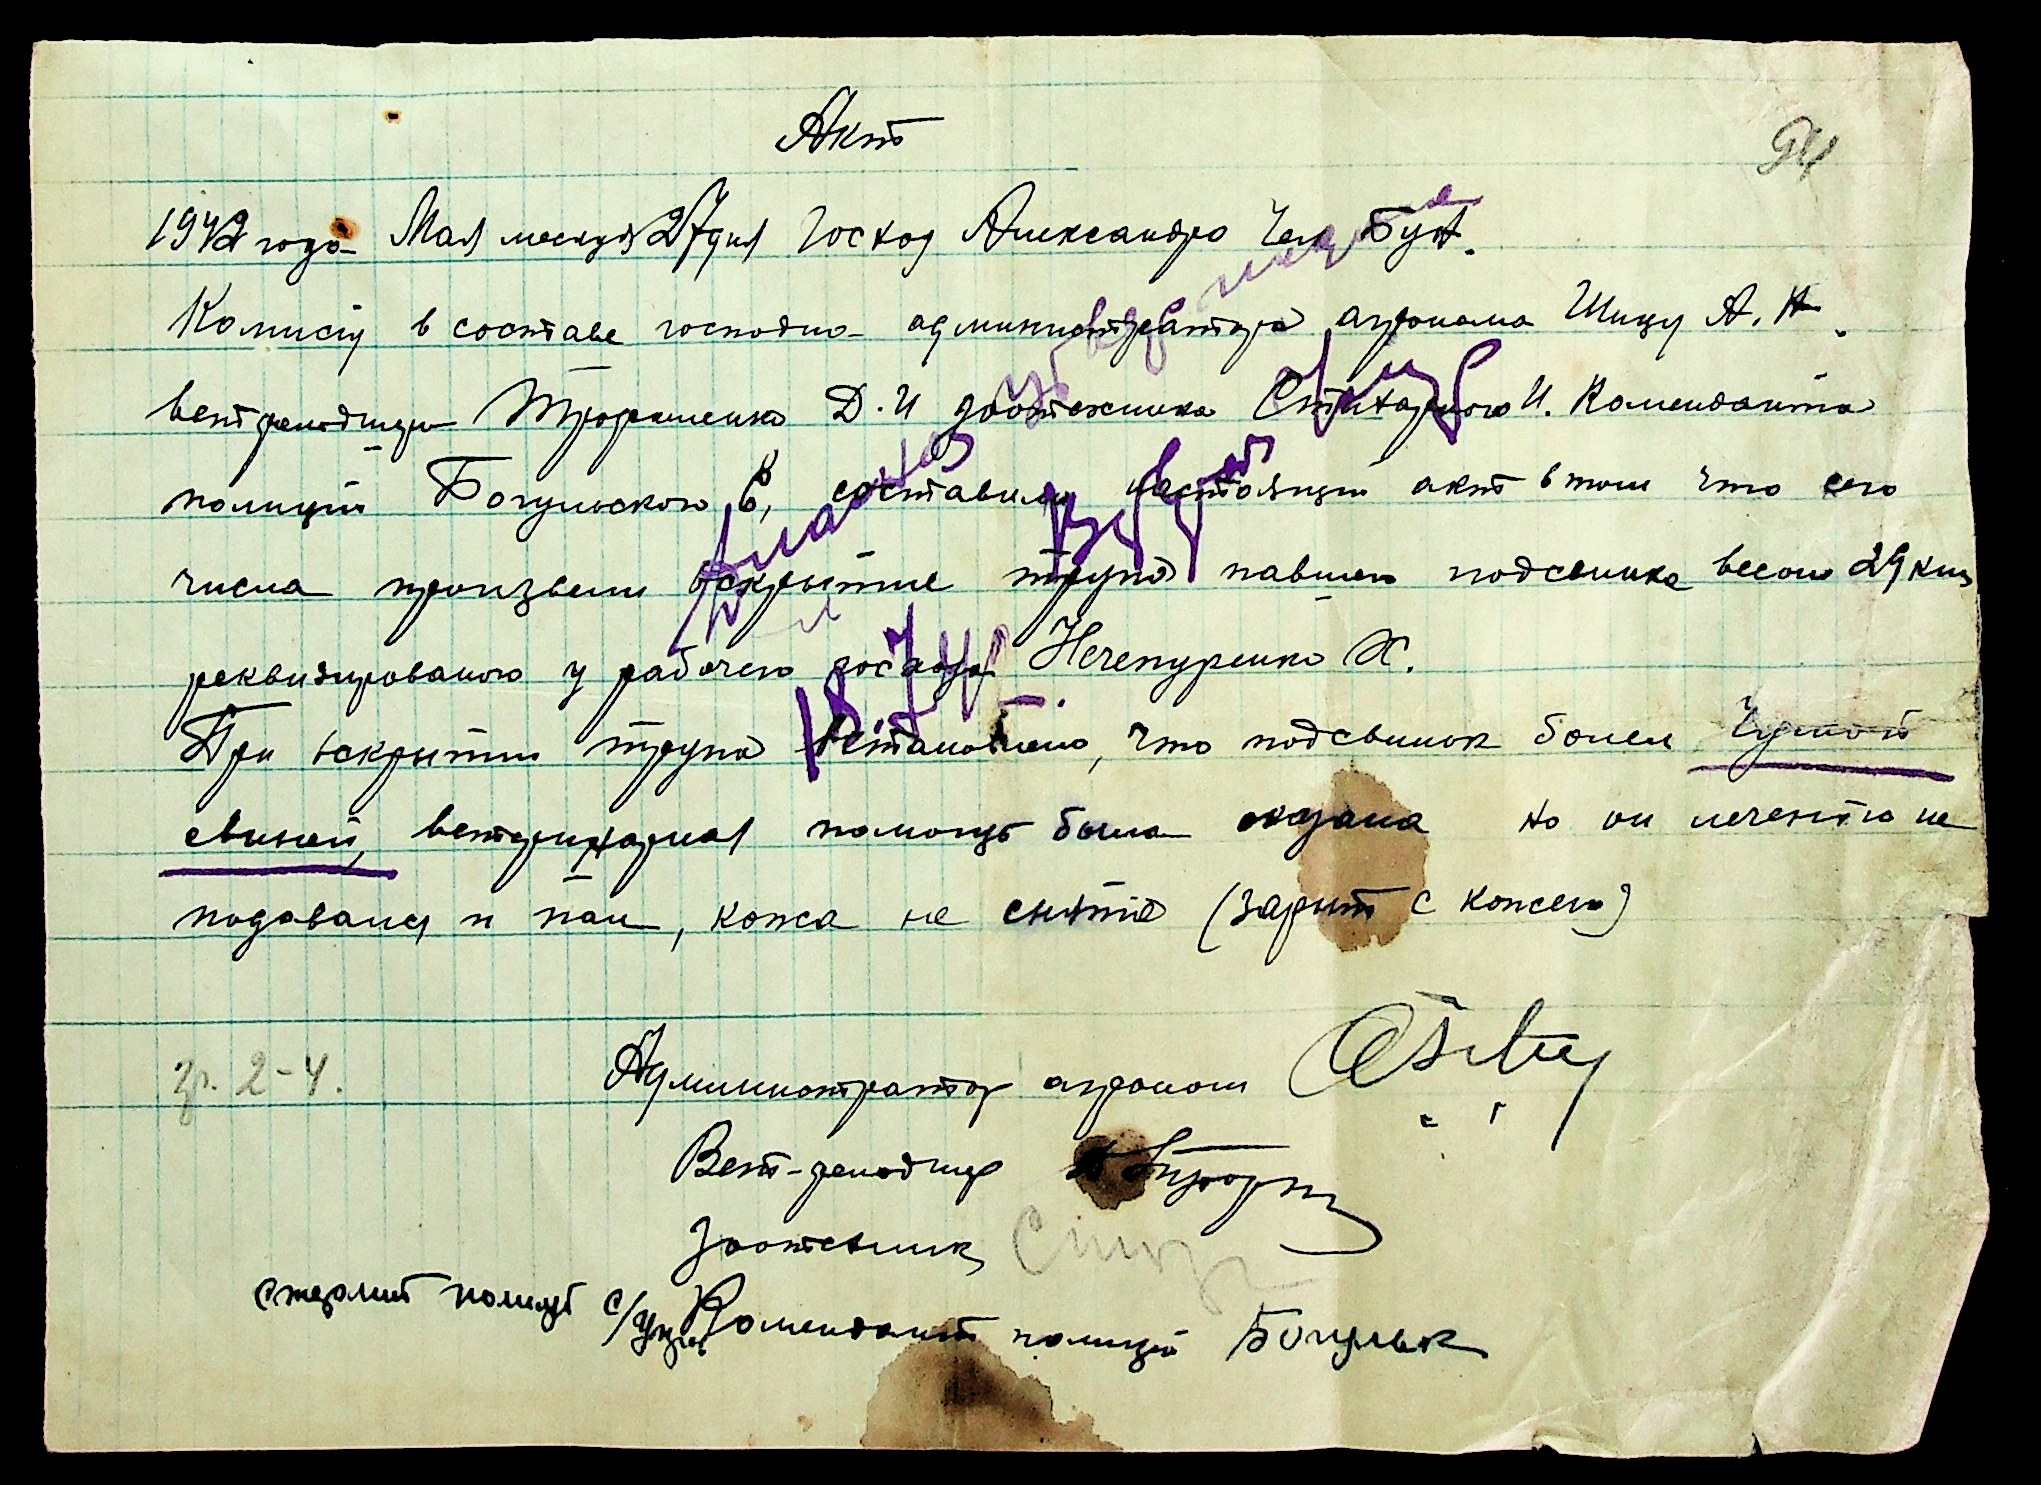 Акт
94
1942 года Мая месяца 27 дня Госхоз Александро
Комисия в составе господина администратора агронома Шицу А. Н.
ветфельдшера Трофименко Д. И зоотехника И. Коменданта
полиции Богульского В, составили настоящий акт в том что сего
числа произвели вскрытие трупа павшего подсвинка весом 29 кил
реквизированого у рабочего госхоза Нечепуренко Х.
При вскрытии трупа встановлено, что подсвинок болел Чумой
свиней, ветеринарная помощь была оказана но он лечению не
подавался и пал, кожа не снята (зарыт с кожею)
гр. 2-4.
Администратор агроном
Вет-фельдшер
Зоотехник
полици Комендант полиции Богульск
18.7 42